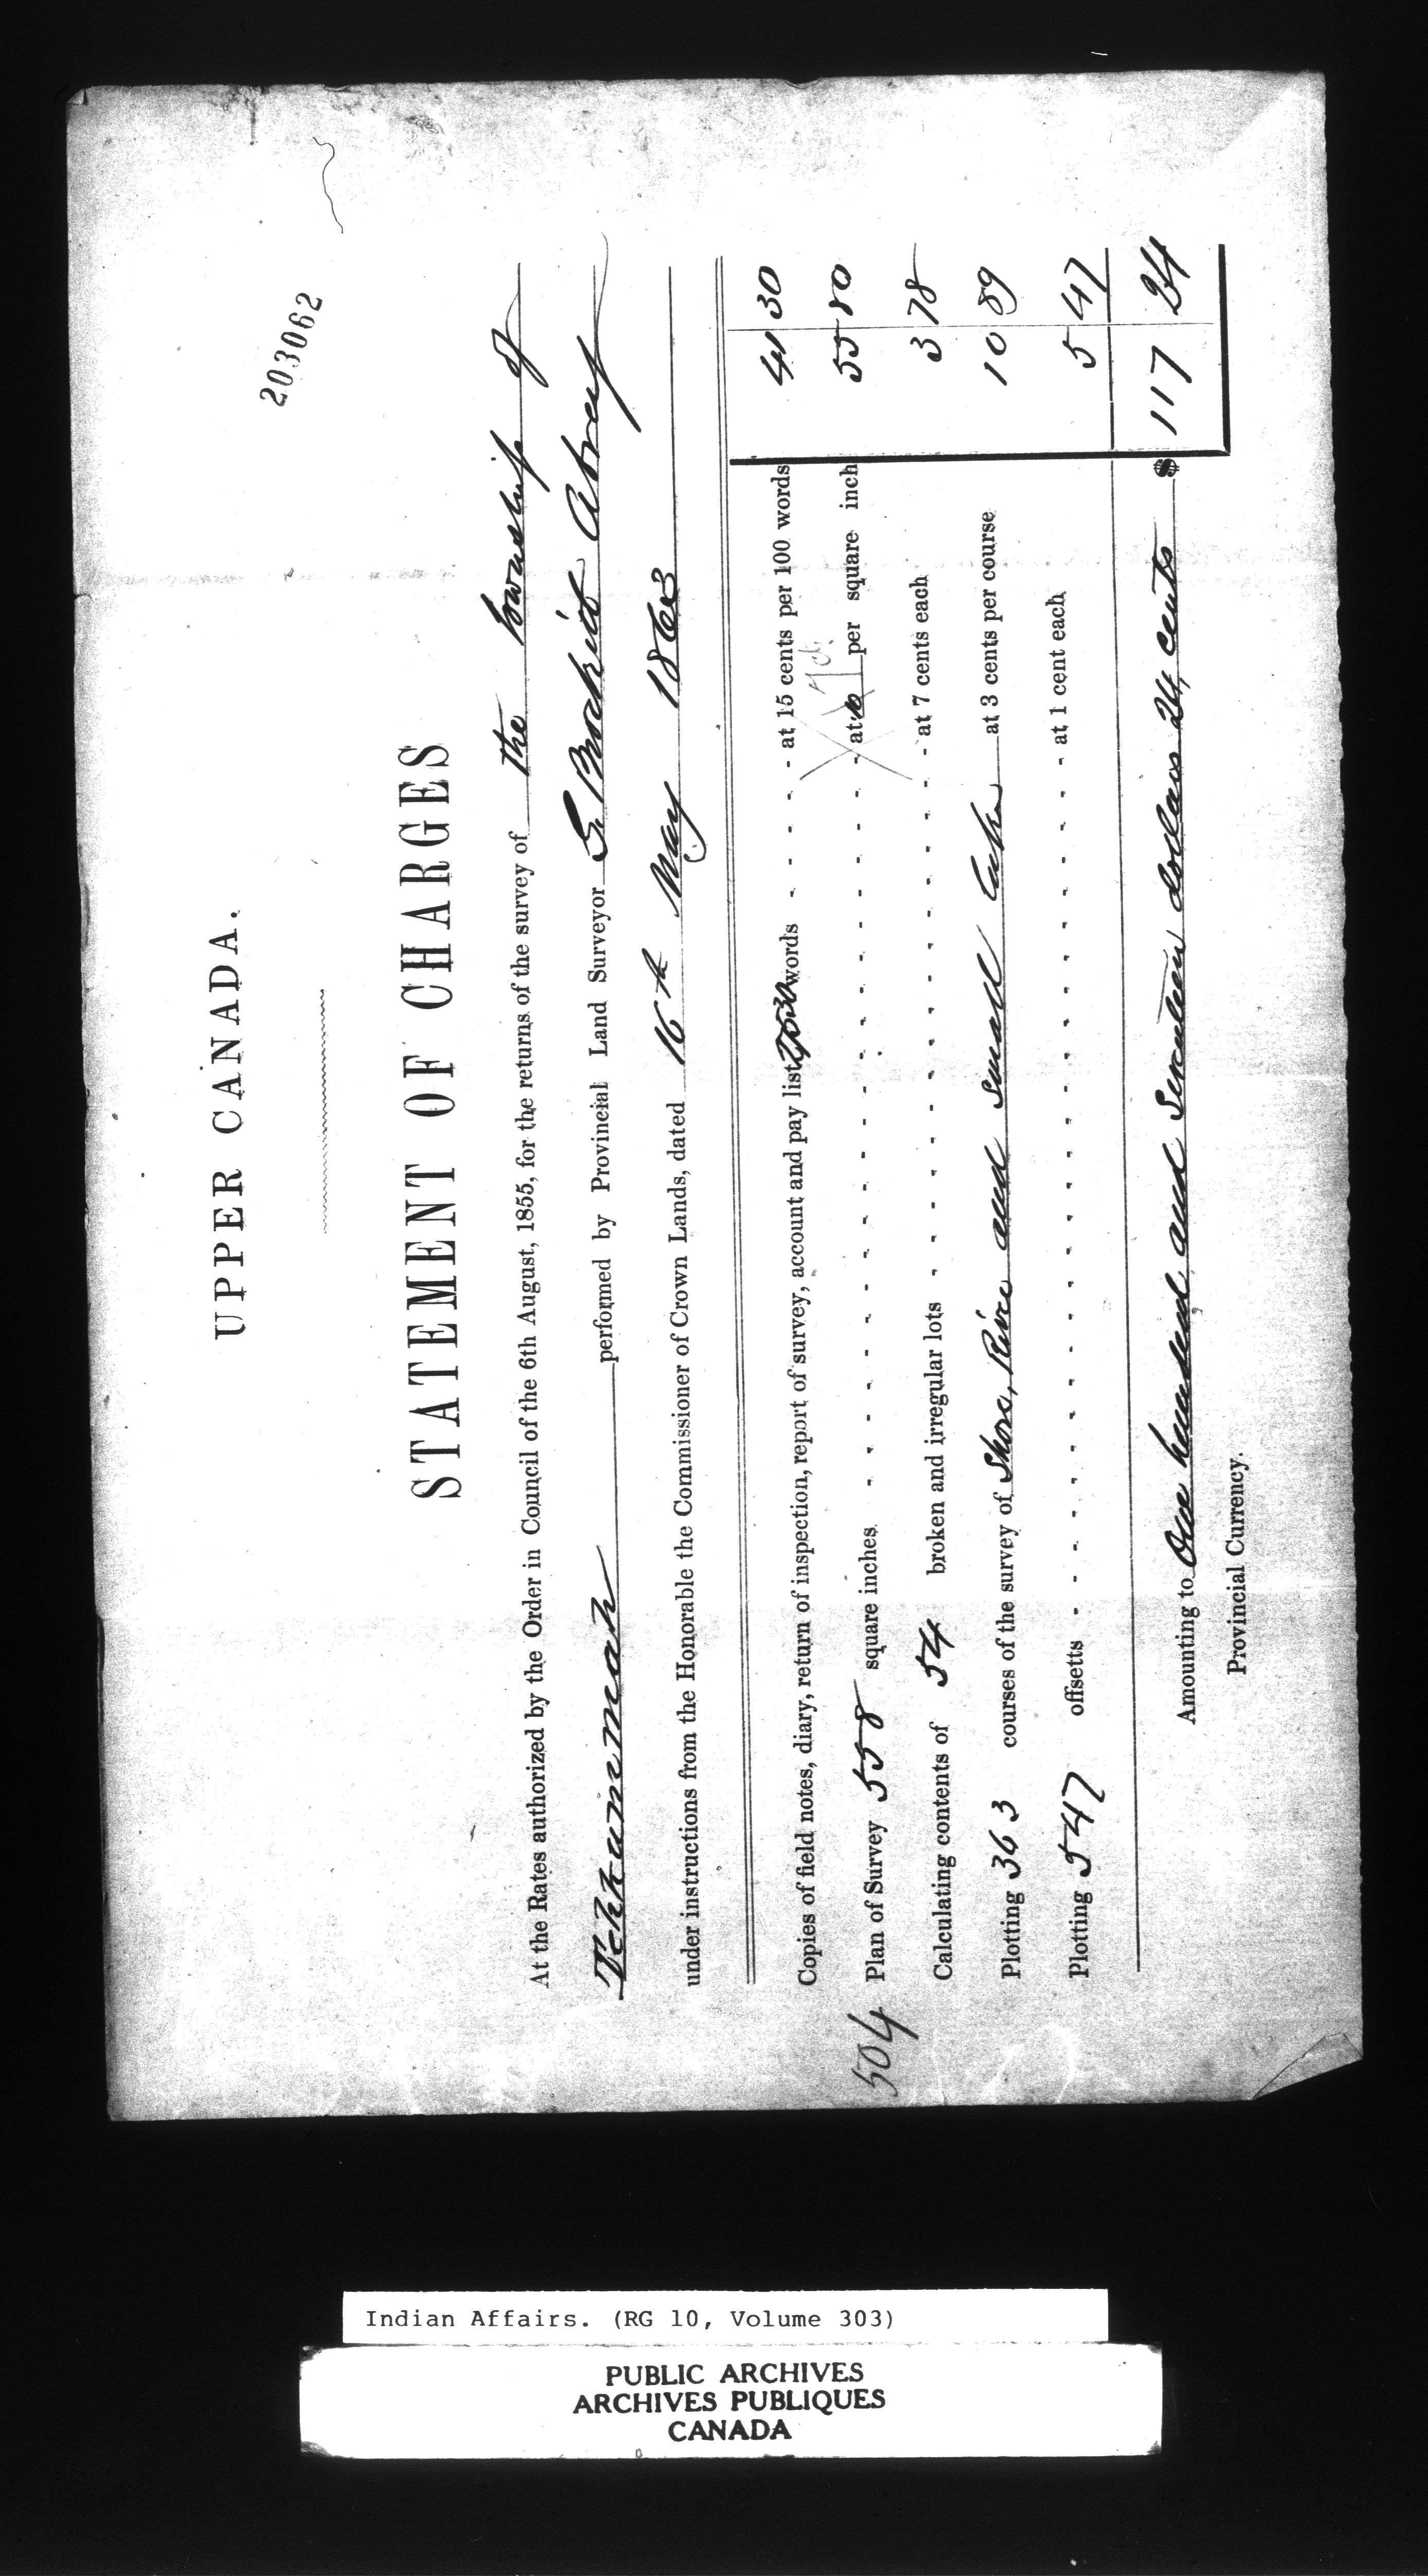 203062
UPPER CANADA.
STATEMENT OF CHARGES
At the Rates authorized by the Order in Council of the 6th August, 1855, for the returns of the survey of the Township of
Tehkummah performed by Provincial Land Surveyor G. Brockitt Abrey
under instructions from the Honorable the Commissioner of Crown Lands, dated 16th May 1863
Copies of field notes, diary, return of inspection, report of survey, account and pay list words - - - - at 15 cents per 100 words 41 30
504 Plan of Survey 558 square inches - - - - - - - - - - - - - at 10 per square inch 55 80
7 ct.
Calculating contents of 54 broken and irregular lots - - - - - - - - - - at 7 cents each 3 78
Plotting 363 courses of the survey of Shore, River and small Lakes at 3 cents per course 10 89
Plotting 547 offsetts - - - - - - - - - - - - - - - at 1 cent each 5 47
Amounting to One hundred and Seventeen dollars 24 cents $ 117 24
Provincial Currency.
Indian Affairs. (RG 10, Volume 303)
PUBLIC ARCHIVES
ARCHIVES PUBLIQUES
CANADA